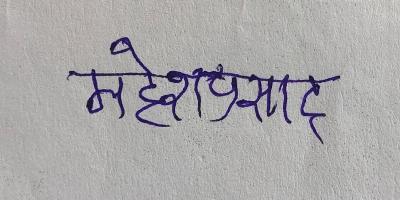 महेशप्रसाद